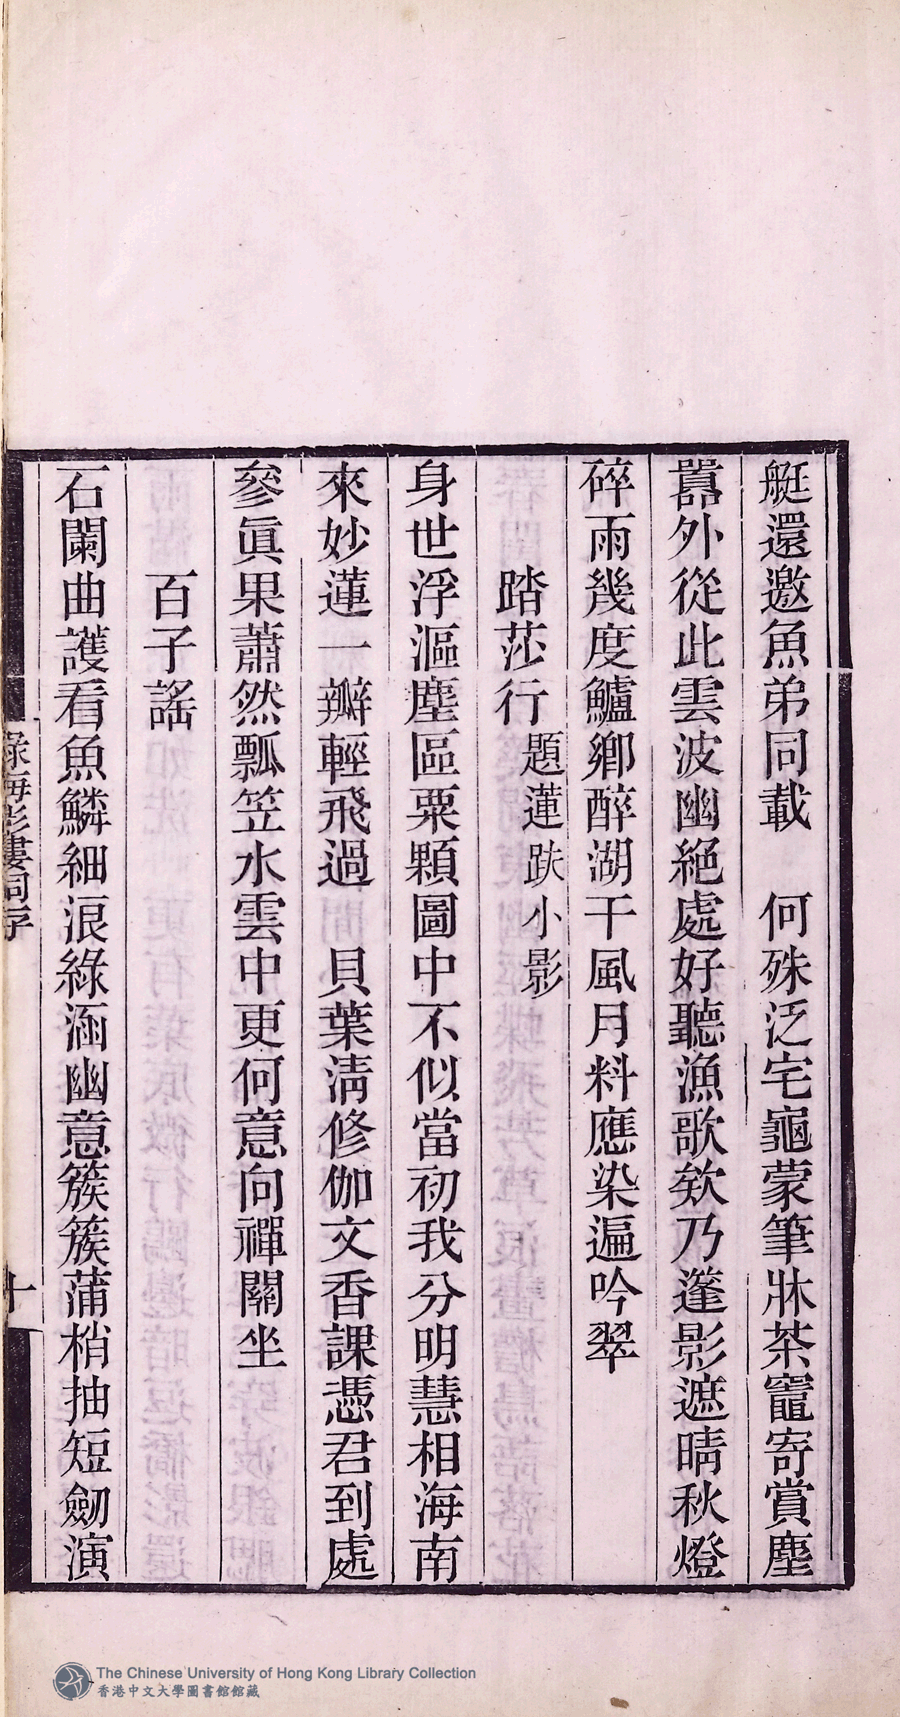 艇還邀魚弟同載　何殊泛宅龜蒙筆牀茶竈寄賞塵
囂外從此雲波幽絕處好聽漁歌欸乃蓬影遮晴秋燈
碎雨幾度鱸鄉醉湖干風月料應染遍吟翠
踏莎行題蓮趺小影
身世浮漚塵區粟顆圖中不似當初我分明慧相海南
來妙蓮一瓣輕飛過　貝葉淸修伽文香課憑君到處
參眞果蕭然瓢笠水雲中更何意向禪關坐
百子謠
石闌曲護看魚鱗細浪綠涵幽意簇簇蒲梢抽短劒演
十
The Chinese University of Hong Kong Library Collection
香港中文大學圖書館館藏